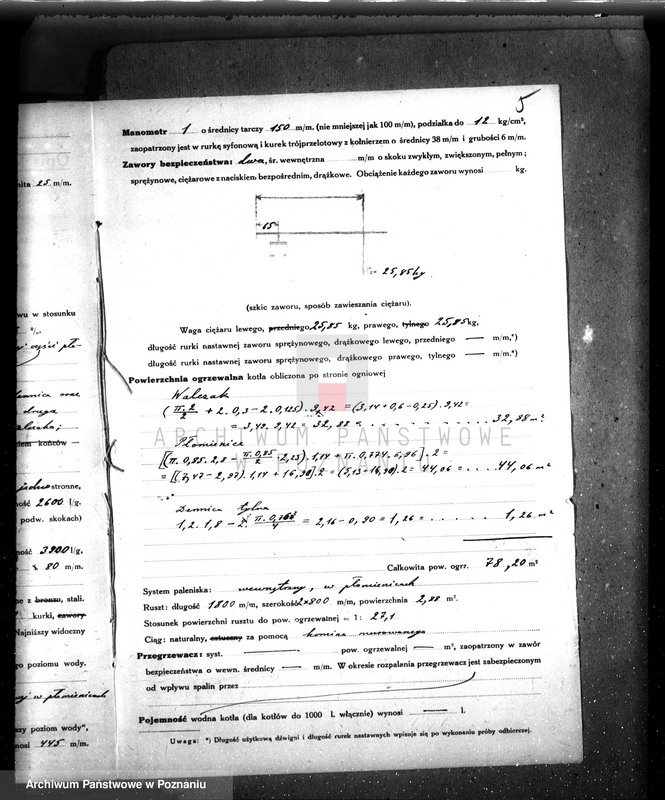 5
Manometr 1 o średnicy tarczy 150 m/m. (nie mniejszej jak 100 m/m), podziałka do 12 kg/cm²,
zaopatrzony jest w rurkę syfonową i kurek trójprzelotowy z kołnierzem o średnicy 38 m/m i grubości 6 m/m.
Zawory bezpieczeństwa: dwa, śr. wewnętrzna m/m o skoku zwykłym, zwiększonym, pełnym;
sprężynowe, ciężarowe z naciskiem bezpośrednim, drążkowe. Obciążenie każdego zaworu wynosi kg.
65
25,85 kg
(szkic zaworu, sposób zawieszania ciężaru).
Waga ciężaru lewego, przedniego 25,85 kg, prawego, tylnego 25,85 kg,
długość rurki nastawnej zaworu sprężynowego, drążkowego lewego, przedniego — m/m,*)
długość rurki nastawnej zaworu sprężynowego, drążkowego prawego, tylnego — m/m.*)
Powierzchnia ogrzewalna kotła obliczona po stronie ogniowej
Walczak
(π.2/2 + 2.0,3 - 2.0,125) . 9,42 = (3,14 + 0,6 - 0,25) . 9,42 =
= 3,49 . 9,42 = 32,88 = 32,88 m²
Płomienice
= 44,06 = 44,06 m²
Dennica tylna
1,2 . 1,8 - = 2,16 - 0,90 = 1,26 = 1,26 m²
Całkowita pow. ogrz. 78,20 m²
System paleniska: wewnętrzny, w płomienicach
Ruszt: długość 1800 m/m, szerokość 2x800 m/m, powierzchnia 2,88 m².
Stosunek powierzchni rusztu do pow. ogrzewalnej = 1: 27,1
Ciąg: naturalny, sztuczny za pomocą komina murowanego
Przegrzewacz: syst. pow. ogrzewalnej — m², zaopatrzony w zawór
bezpieczeństwa o wewn. średnicy — m/m. W okresie rozpalania przegrzewacz jest zabezpieczonym
od wpływu spalin przez
Pojemność wodna kotła (dla kotłów do 1000 l. włącznie) wynosi — l.
Uwaga: *) Długość użytkową dźwigni i długość rurek nastawnych wpisuje się po wykonaniu próby odbiorczej.
25 m/m.
wu w stosunku
%
części pło-
dennica oraz
druga
iem końców —
stronne,
ność 2600 l/g,
podw. skokach)
ność 3900 l/g,
x 80 m/m.
e z bronzu, stali.
kurki, zawory
Najniższy widoczny
go poziomu wody.
w płomienicach
szy poziom wody",
nosi 445 m/m.
ARCHIWUM PAŃSTWOWE
W POZNANIU
Archiwum Państwowe w Poznaniu